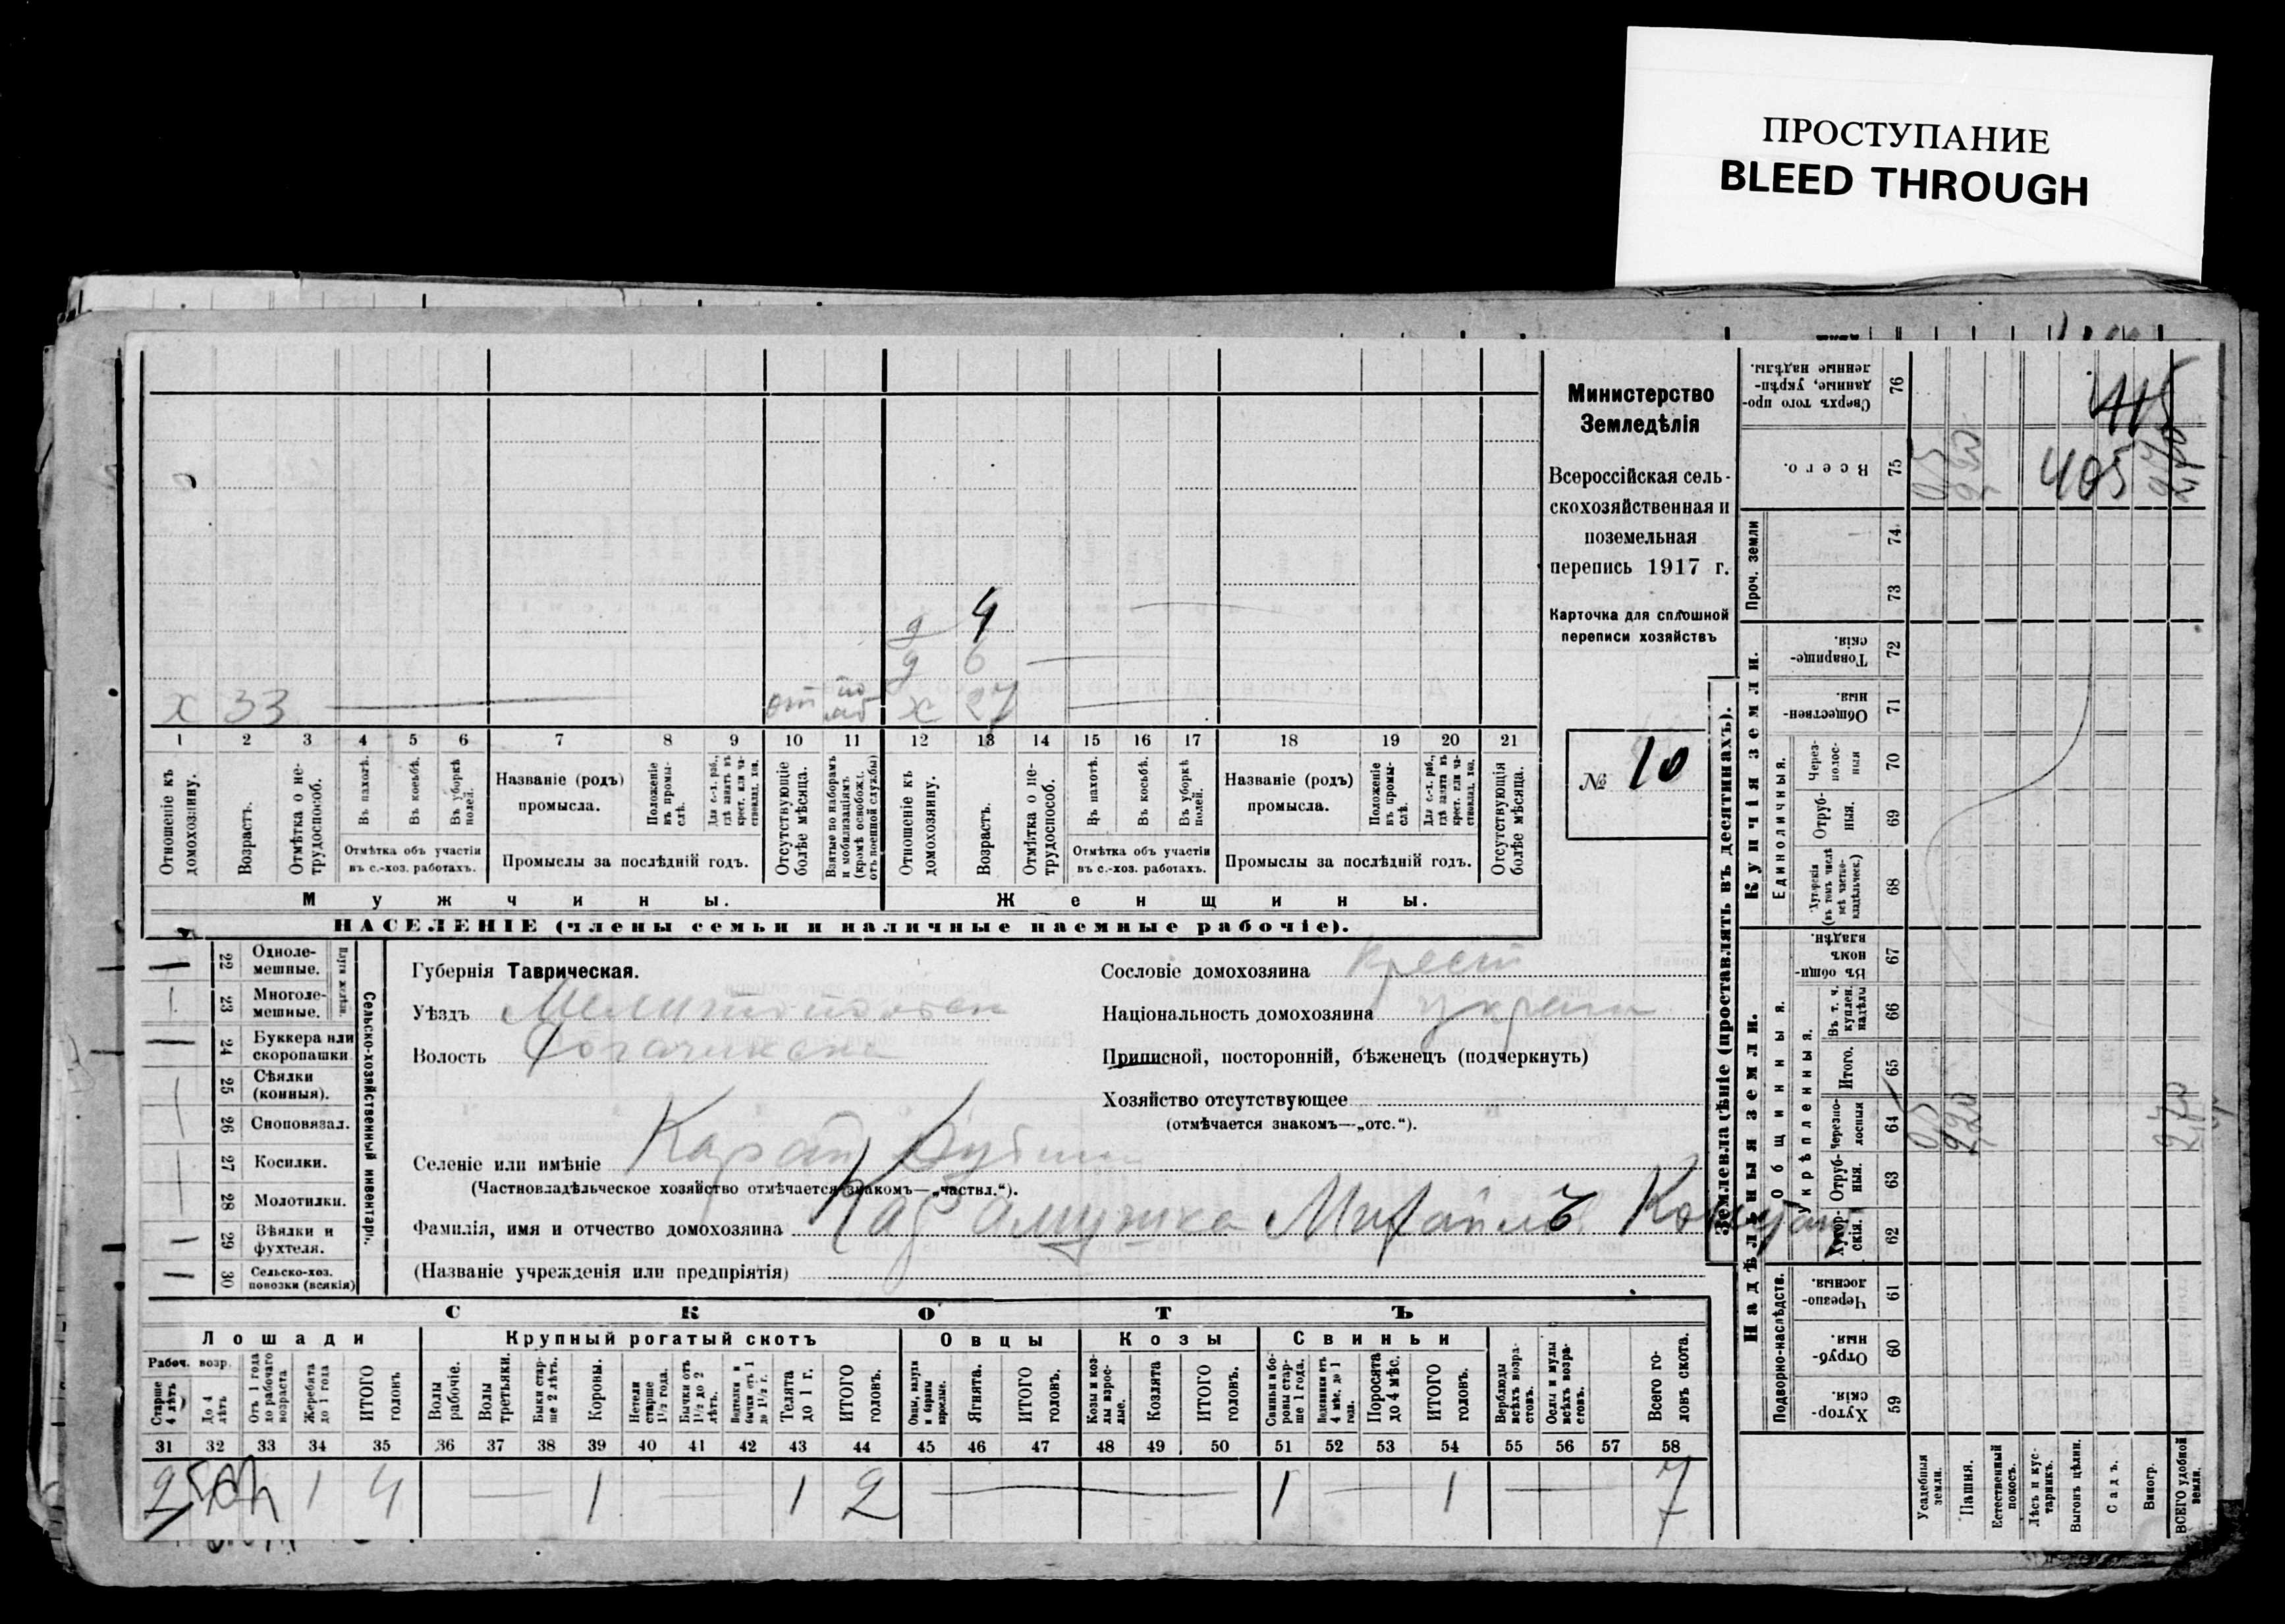 ПРОСТУПАНИЕ
BLEED THROUGH
Министерство
Земледѣлія
Всероссійская сель-
скохозяйственная и
поземельная
перепись 1917 г.
Карточка для сплошной
переписи хозяйствъ
№ 10
4
д
д 6
х 33 х 27
1 2 3 4 5 6 7 8 9 10 11 12 13 14 15 16 17 18 19 20 21
Отношеніе къ домохозяину.
Возрастъ.
Отмѣтка о не-трудоспособ.
Въ пахотѣ.
Въ косьбѣ.
Въ уборкѣ полей.
Отмѣтка объ участіи
въ с.-хоз. работахъ.
Названіе (родъ)
промысла.
Положеніе въ промы-слѣ.
Для с.-х. раб., гдѣ занятъ въ крест. или ча-стновлад. хоз.
Промыслы за послѣдній годъ.
Отсутствующіе болѣе мѣсяца.
Взятые по наборамъ и мобилизаціямъ (кромѣ освобожд. отъ военной службы)
Отношеніе къ домохозяину.
Возрастъ.
Отмѣтка о не-трудоспособ.
Въ пахотѣ.
Въ косьбѣ.
Въ уборкѣ полей.
Отмѣтка объ участіи
въ с.-хоз. работахъ.
Названіе (родъ)
промысла.
Положеніе въ промы-слѣ.
Для с.-х. раб., гдѣ занята въ крест. или ча-стновлад. хоз.
Промыслы за послѣдній годъ.
Отсутствующія болѣе мѣсяца.
Мужчины.
Женщины.
НАСЕЛЕНІЕ (члены семьи и наличные наемные рабочіе).
Сельско-хозяйственный инвентарь.
Плуги желѣзн.
22 Одноле-мешные.
23 Многоле-мешные.
24 Буккера или скоропашки
25 Сѣялки (конныя).
26 Сноповязал.
27 Косилки.
28 Молотилки.
29 Вѣялки и фухтеля.
30 Сельско-хоз. повозки (всякія)
Губернія Таврическая.
Уѣздъ Мелитопольск
Волость
Сословіе домохозяина крест
Національность домохозяина украин
Приписной, посторонній, бѣженец (подчеркнуть)
Хозяйство отсутствующее
(отмѣчается знакомъ—„отс.“).
Селеніе или имѣніе Карай Дубина
(Частновладѣльческое хозяйство отмѣчается знакомъ—„частвл.“).
Фамилія, имя и отчество домохозяина Михаилъ
(Названіе учрежденія или предпріятія)
СКОТЪ
Лошади
Крупный рогатый скотъ
Овцы
Козы
Свиньи
Рабоч. возр.
Старше 4 лѣтъ
До 4 лѣтъ
Отъ 1 года до рабочаго возраста
Жеребята до 1 года
ИТОГО головъ
Волы рабочіе.
Волы третьяки.
Быки стар-ше 2 лѣтъ.
Коровы.
Нетели старше 1½ года.
Бычки отъ 1½ до 2 лѣтъ.
Водтелки и бычки отъ 1 до 1½ г.
Телята до 1 г.
ИТОГО головъ.
Овцы, валухи и бараны взрослые.
Ягнята.
ИТОГО головъ.
Козы и коз-лы взрос-лые.
Козлята
ИТОГО головъ.
Свиньи и бо-ровы стар-ше 1 года.
Подсвинки отъ 4 мѣс. до 1 года.
Поросята до 4 мѣс.
ИТОГО головъ.
Верблюды всѣхъ возра-стовъ.
Ослы и мулы всѣхъ возра-стовъ.
Всего го-ловъ скота.
31 32 33 34 35 36 37 38 39 40 41 42 43 44 45 46 47 48 49 50 51 52 53 54 55 56 57 58
2 1 4 1 1 2 1 1 7
Землевладѣніе (проставлять въ десятинахъ).
Надѣльныя земли.
Купчія земли.
Проч. земли
Подворно-наслѣдств.
Общинныя.
Укрѣпленныя.
Единоличныя.
Сверхъ того про-данные, укрѣп-ленные надѣлы. 76
Всего. 75
74
73
Товарище-скія. 72
Обществен-ныя. 71
Через-полос-ныя 70
Отруб-ныя. 69
Хуторскія (въ томъ числѣ всѣ частно-владѣльческ.) 68
Въ общин-номъ владѣн. 67
Въ т. ч. куплен. надѣлы 66
Итого. 65
Черезпо-лосныя 64
Отруб-ныя. 63
Хутор-скія. 62
Черезпо-лосныя. 61
Отруб-ныя. 60
Хутор-скія. 59
Усадебныя земли.
Пашня.
Естественный покосъ.
Лѣсъ и кус-тарникъ.
Выгонъ цѣлин.
Садъ.
Виногр.
ВСЕГО удобной земли.
405